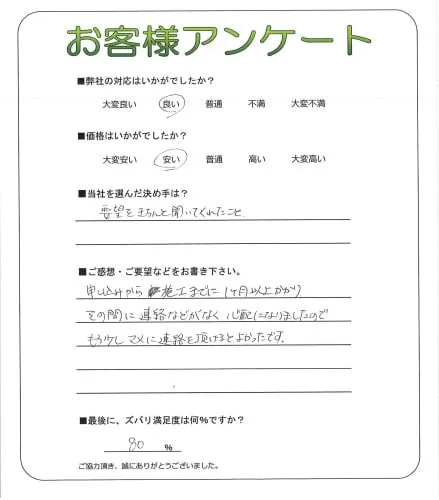 お客様アンケート
■弊社の対応はいかがでしたか？
大変良い 良い 普通 不満 大変不満
■価格はいかがでしたか？
大変安い 安い 普通 高い 大変高い
■当社を選んだ決め手は？
要望をきちんと聞いてくれたこと
■ご感想・ご要望などをお書き下さい。
申し込みから施工までに1ヶ月以上かかり
その間に連絡などがなく心配になりましたので
もう少しマメに連絡を頂けるとよかったです。
■最後に、ズバリ満足度は何%ですか？
80 %
ご協力頂き、誠にありがとうございました。